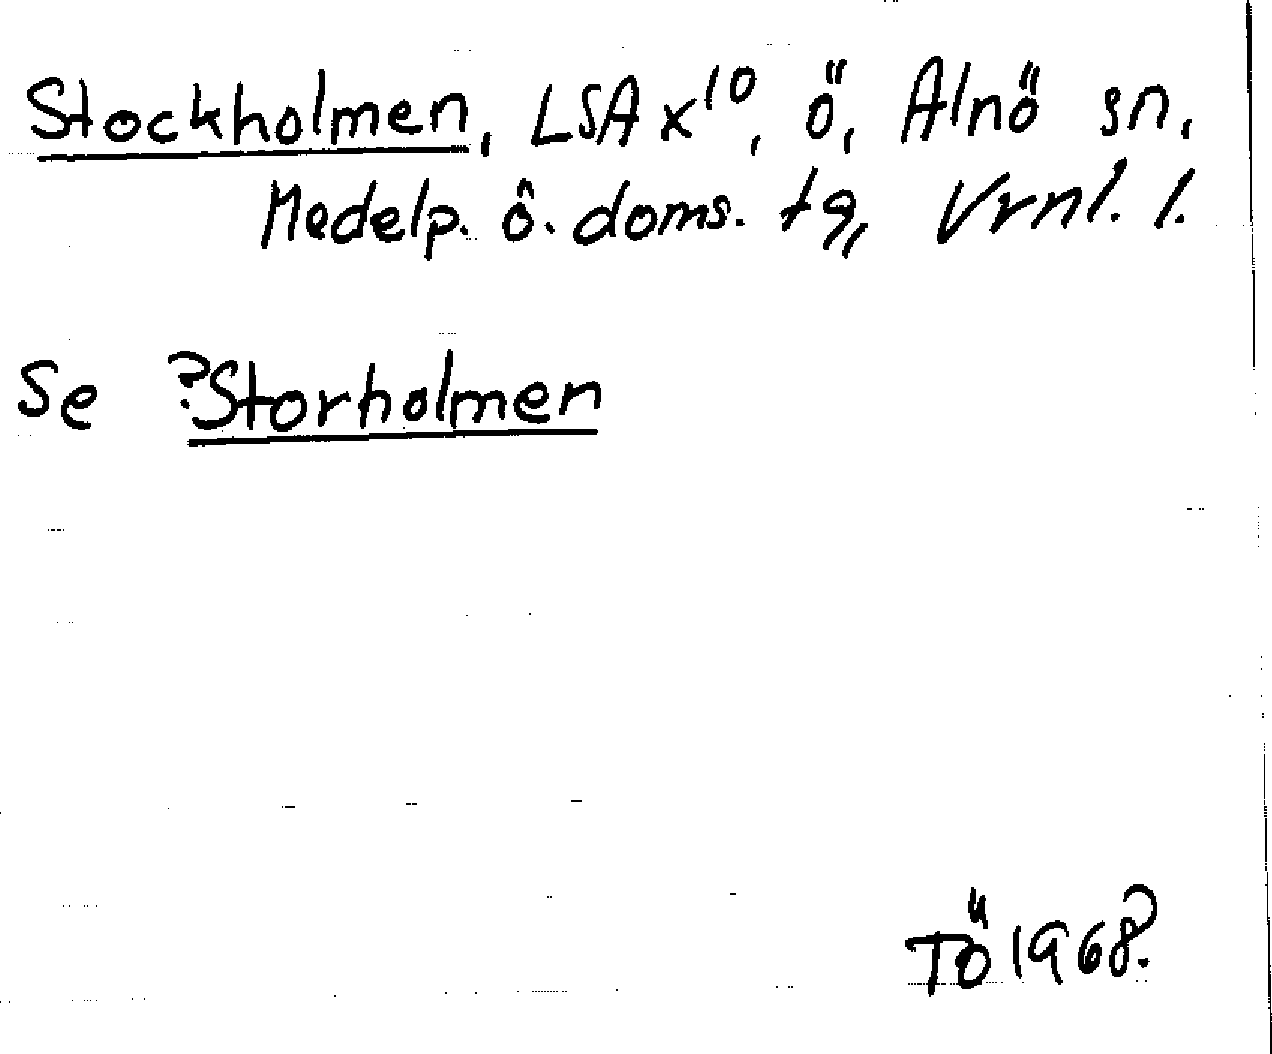 Stockholmen, LSA x10, ö, Alnö sn,
Medelp. ö. doms. tg, Vrnl. l.
Se ?Storholmen
TÖ 1968?